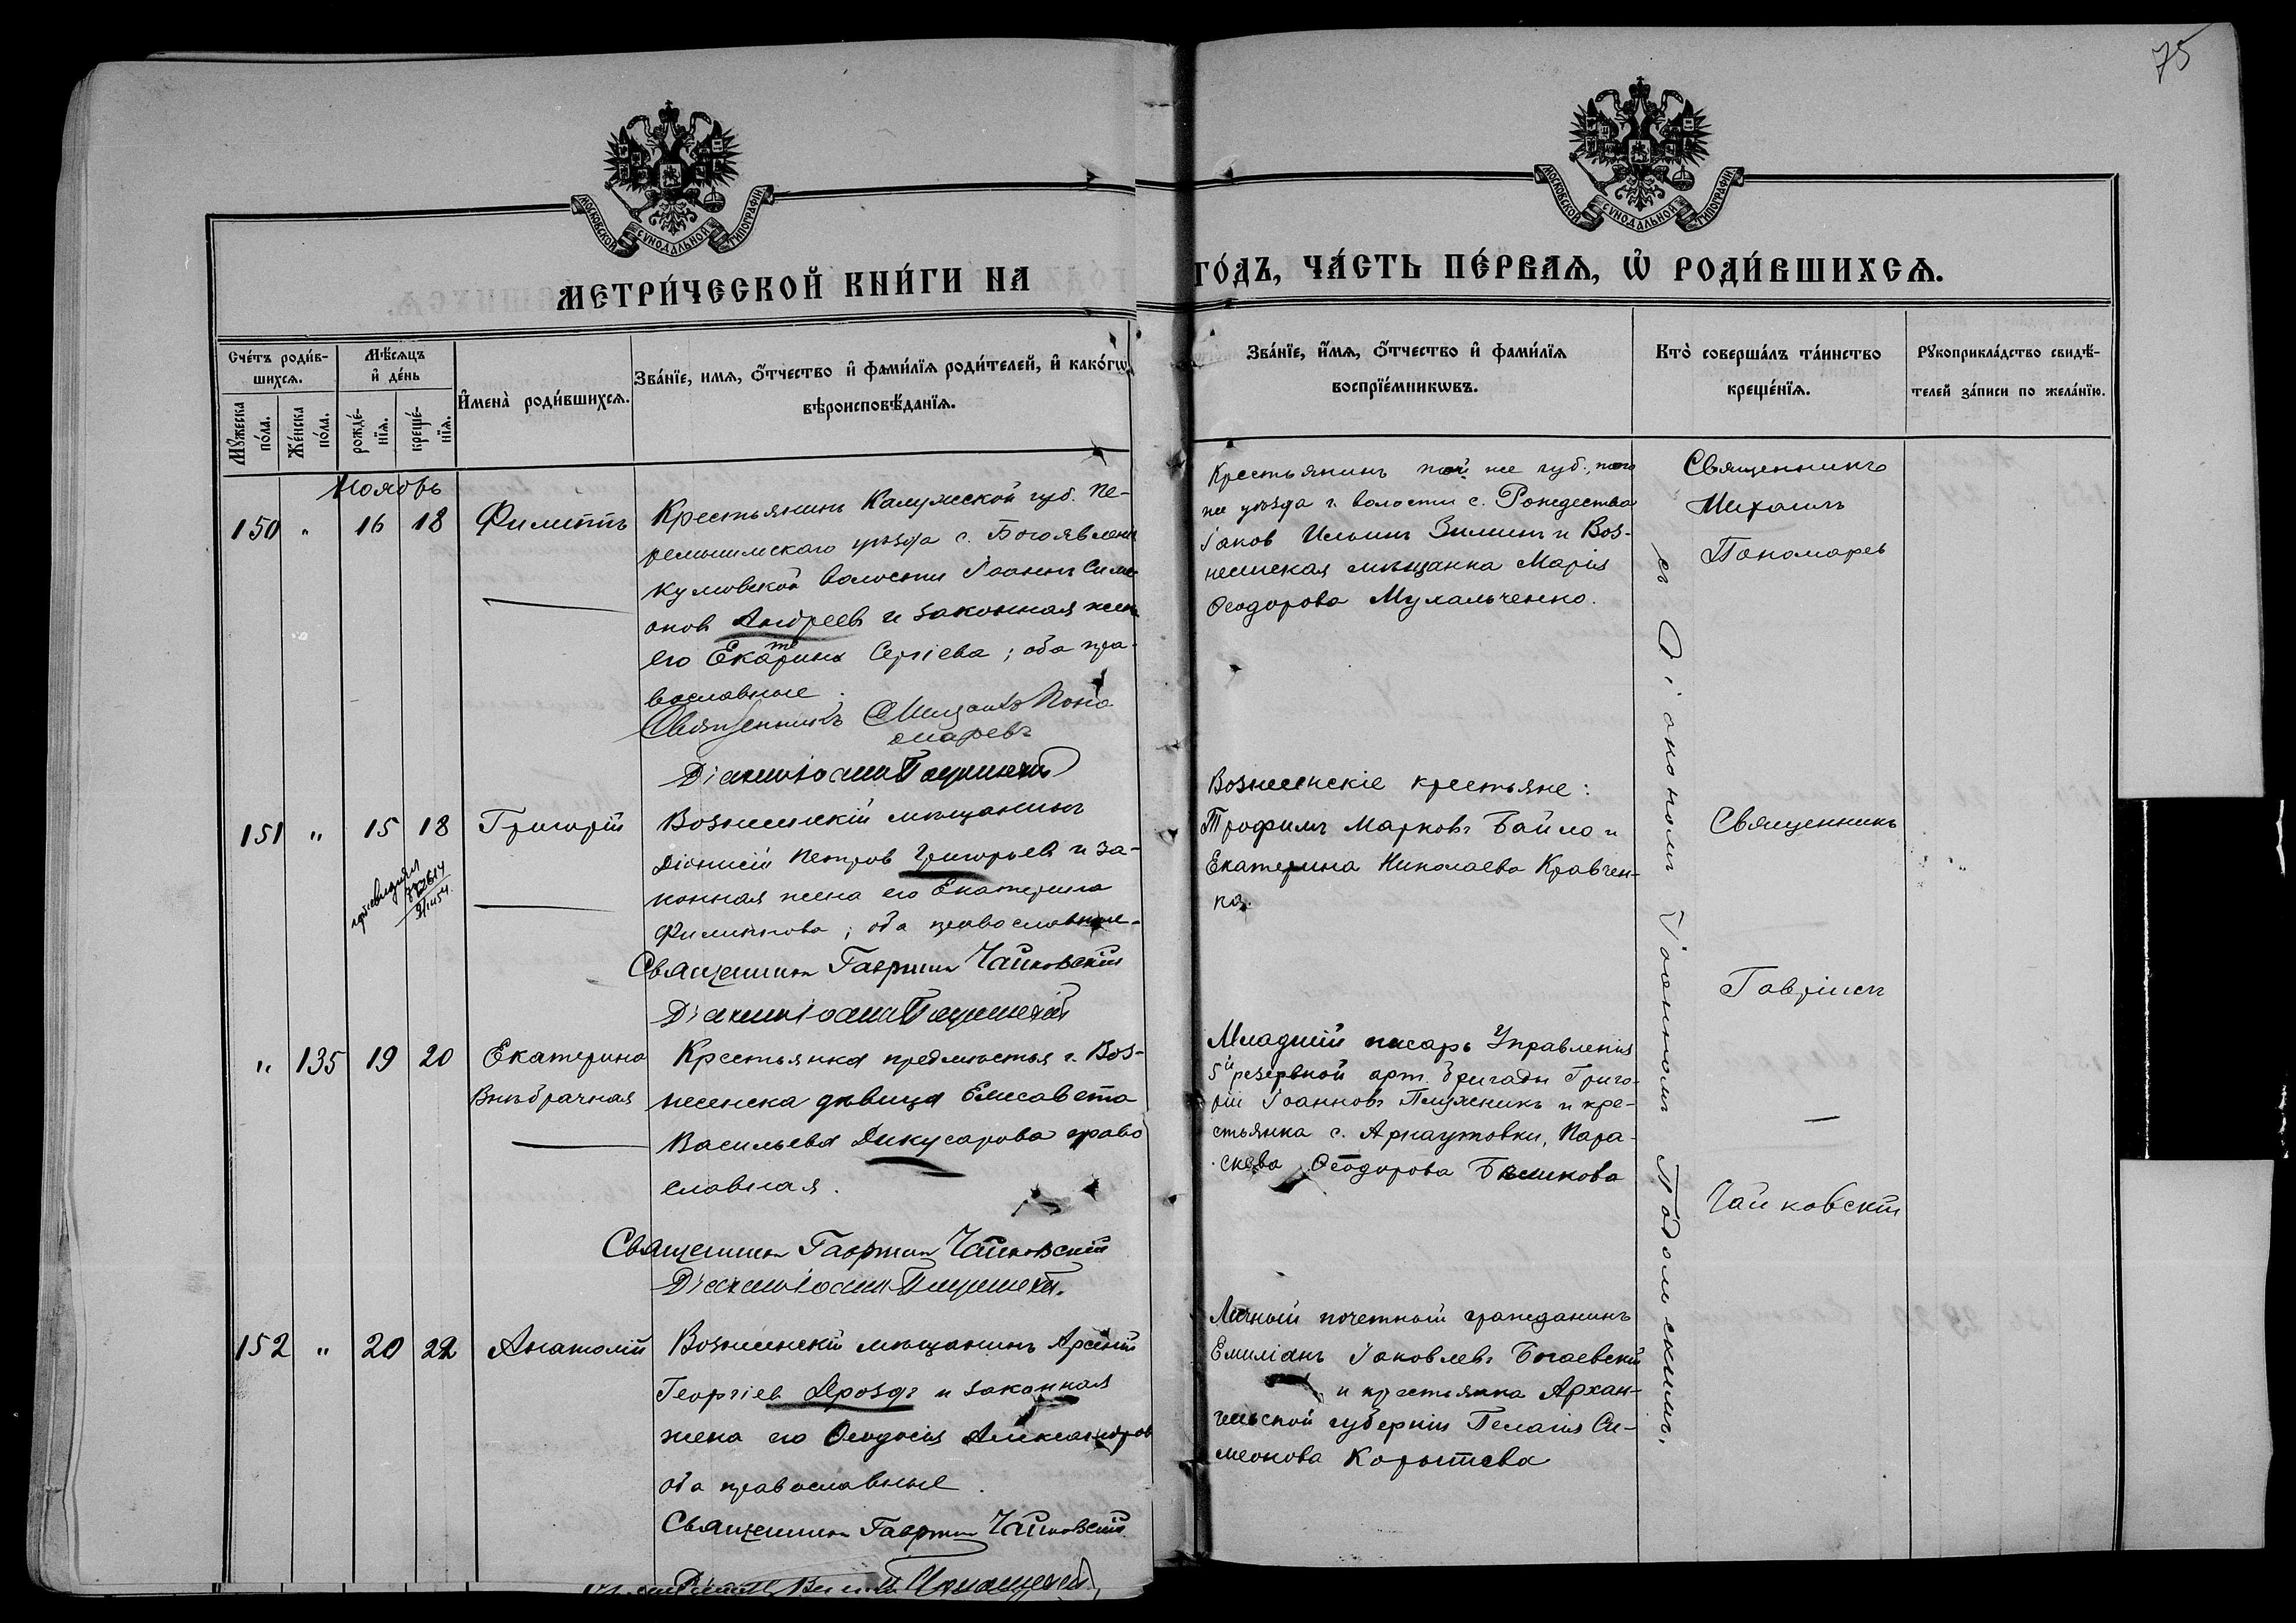 75
МОСКОВСКОЙ СѴНОДАЛЬНОЙ ТИПОГРАФІИ
МОСКОВСКОЙ СѴНОДАЛЬНОЙ ТИПОГРАФІИ
МЕТРИ́ЧЕСКОЙ КНИ́ГИ НА
ГО́ДЪ, ЧА́СТЬ ПЕ́РВАѦ, Ѡ҆ РОДИ́ВШИХСѦ.
Сче́тъ роди́в-
шихсѧ.
Мꙋ́жеска по́ла.
Же́нска по́ла.
Мѣ́сѧцъ
и҆ де́нь
рожде́-
нїѧ.
креще́-
нїѧ.
И҆мена̀ роди́вшихсѧ.
Зва́нїе, имѧ, ѻ҆́тчество и҆ фами́лїѧ роди́телей, и҆ како́гѡ
вѣроисповѣ́данїѧ.
Зва́нїе, и҆́мѧ, ѻ҆́тчество и҆ фами́лїѧ
воспрїе́мникѡвъ.
Кто̀ соверша́лъ та́инство
креще́нїѧ.
Рꙋкоприкла́дство свидѣ́-
телей за́писи по жела́нїю.
Ноябрь
150 " 16 18 Филиппъ
Крестьянинъ Калужской губ. Пе-
ремышльскаго уѣзда с. Богоявлен
волости Іоаннъ Симе
онов Андреев и законная жена
его Екатерина Сергіева; оба пра-
вославные.
Священникъ Михаилъ Поно
маревъ
Діаконъ Іоаннъ
Крестьянинъ той же губ., того
же уѣзда и волости с. Рождества
Іаков Ильинъ Зиминъ и Воз-
несенская мѣщанка Марія
Ѳеодорова Михальченко.
Священникъ
Михаилъ
Пономарев
151 " 15 18 Григорій
872614
Вознесенскій мѣщанинъ
Діонисій Петров Григорьев и за-
конная жена его Екатерина
Филиппова; оба православные.
Священникъ Гавріилъ Чайковскій
Діаконъ Іоаннъ
Вознесенскіе крестьяне:
Трофимъ Марковъ Байло и
Екатерина Николаева Кравчен-
ко.
Священникъ
Гавріилъ
" 135 19 20 Екатерина
Внѣбрачная
Крестьянка предмѣстья г. Воз-
несенска дѣвица Елисавета
Васильева Дикусарова право
славная.
Священникъ Гавріилъ Чайковскій
Діаконъ Іоаннъ
Младшій писарь Управленія
5й резервной арт. бригады Григо-
рій Іоанновъ Плужникъ и кре-
стьянка с. Арнаутовки, Пара-
скева Ѳеодорова
Чайковскій
съ Діакономъ Іоанномъ
152 " 20 22 Анатолій
Вознесенскій мѣщанинъ Арсеній
Георгіев Дроздъ и законная
жена его Ѳеодосія Александров
оба православные.
Священникъ Гавріилъ Чайковскій
Личный почетный гражданинъ
Емиліанъ Іаковлевъ Богаевскій
и крестьянка Архан-
гельской губерніи Пелагія Си-
меонова Корытева